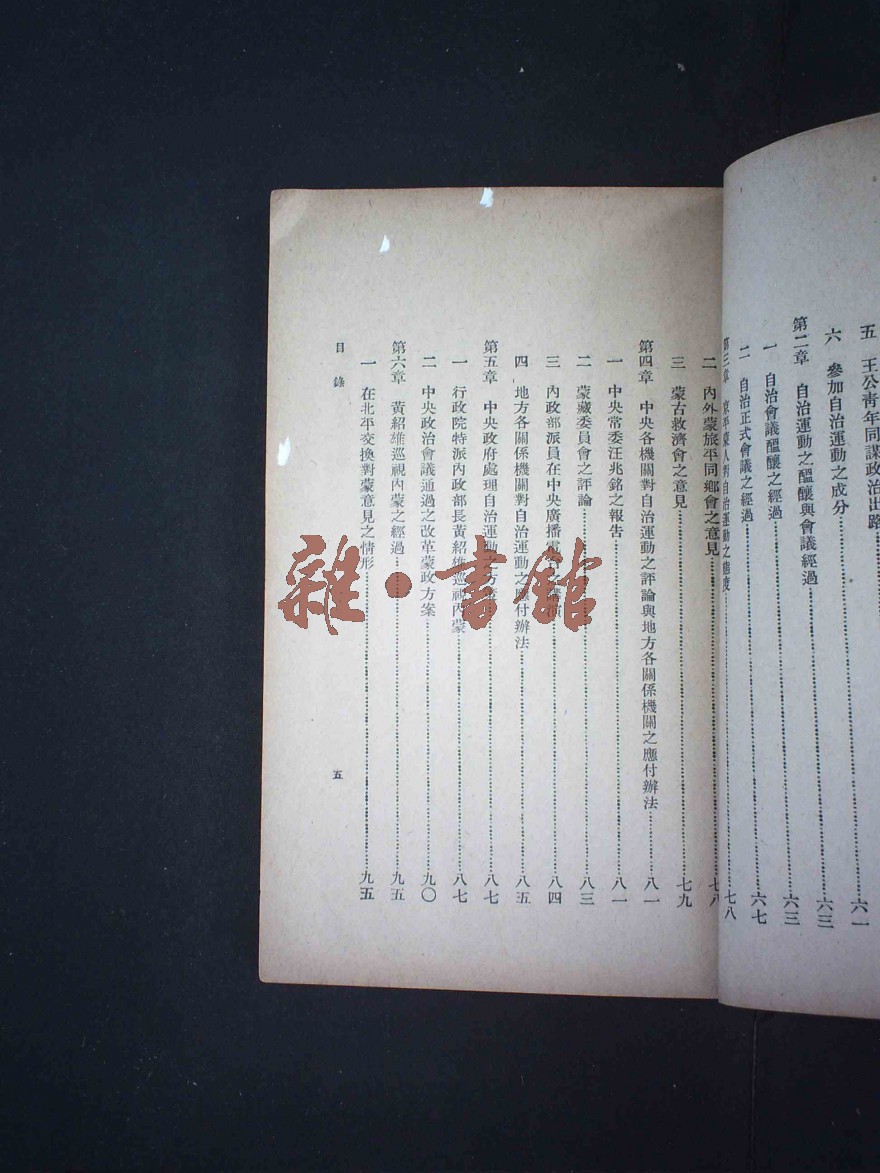 五 王公青年同謀政治出路……六一
六 參加自治運動之成分……六三
第二章 自治運動之醞釀與會議經過……六三
一 自治會議醞釀之經過……六三
二 自治正式會議之經過……六七
第三章 京平蒙人對自治運動之態度……七八
二 內外蒙旅平同鄉會之意見……七八
三 蒙古救濟會之意見……七九
第四章 中央各機關對自治運動之評論與地方各關係機關之應付辦法……八一
一 中央常委汪兆銘之報告……八一
二 蒙藏委員會之評論……八三
三 內政部派員在中央廣播電台之講演……八四
四 地方各關係機關對自治運動之應付辦法……八五
第五章 中央政府處理自治運動之方案……八七
一 行政院特派內政部長黃紹雄巡視內蒙……八七
二 中央政治會議通過之改革蒙政方案……九〇
第六章 黃紹雄巡視內蒙之經過……九五
一 在北平交換對蒙意見之情形……九五
目錄
五
雜·書館